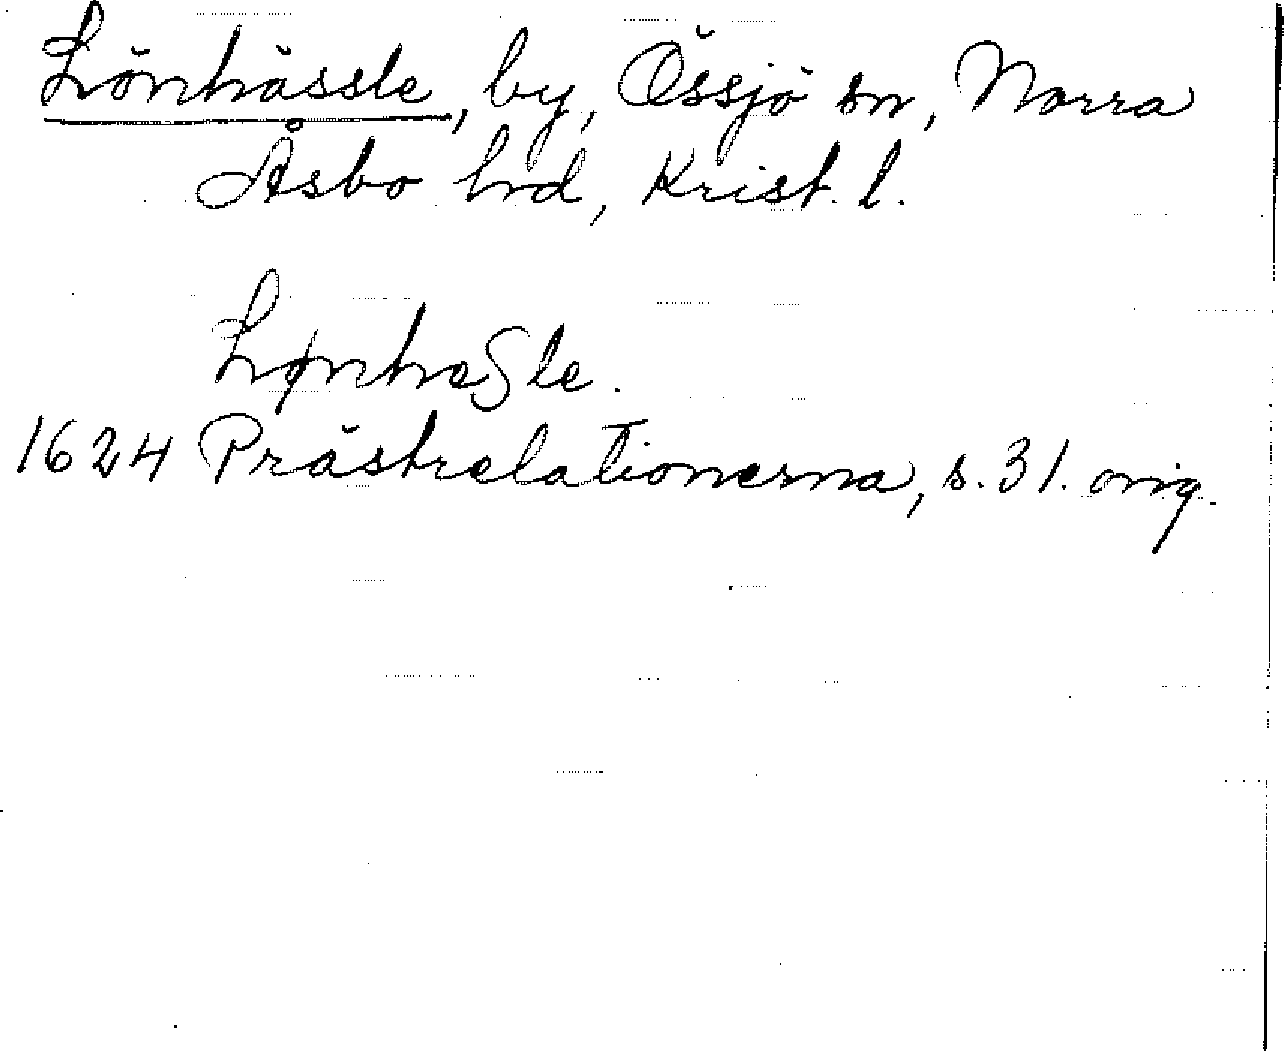 Lönhässle, by, Össjö sn, Norra
Åsbo hrd, Krist. l.
Lønhaßle.
1624 Prästrelationerna, s. 31. orig.